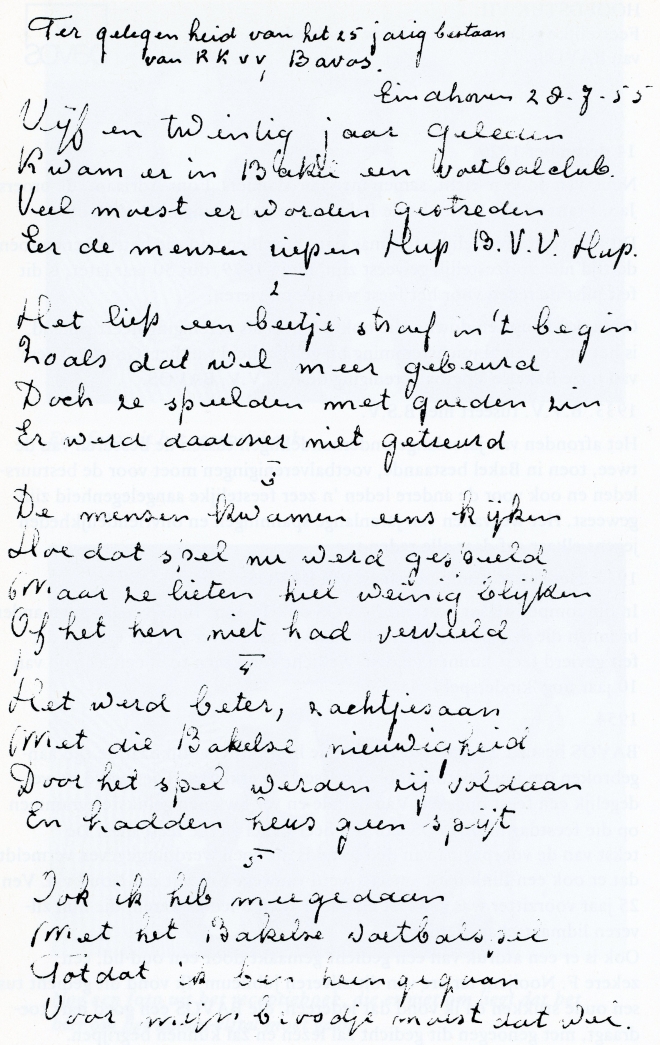 Ter gelegenheid van het 25 jarig bestaan
van RKVV, Bavos.
Eindhoven 28-7-55
Vijf en twintig jaar geleden
Kwam er in Bakel een voetbalclub.
Veel moest er worden gestreden
Eer de mensen riepen Hup B.V.V. Hup.
2
Het liep een beetje straf in 't begin
Zoals dat wel meer gebeurd
Doch ze speelden met goeden zin
Er werd daarover niet getreurd
3
De mensen kwamen eens kijken
Hoe dat spel nu werd gespeeld
Maar ze lieten heel weinig blijken
Of het hen niet had verveeld
4
Het werd beter, zachtjesaan
Met die Bakelse nieuwigheid
Door het spel werden zij voldaan
En hadden heus geen spijt
5
Ook ik heb meegedaan
Met het Bakelse voetbalspel
Totdat ik ben heengegaan
Voor mijn broodje moest dat wel.